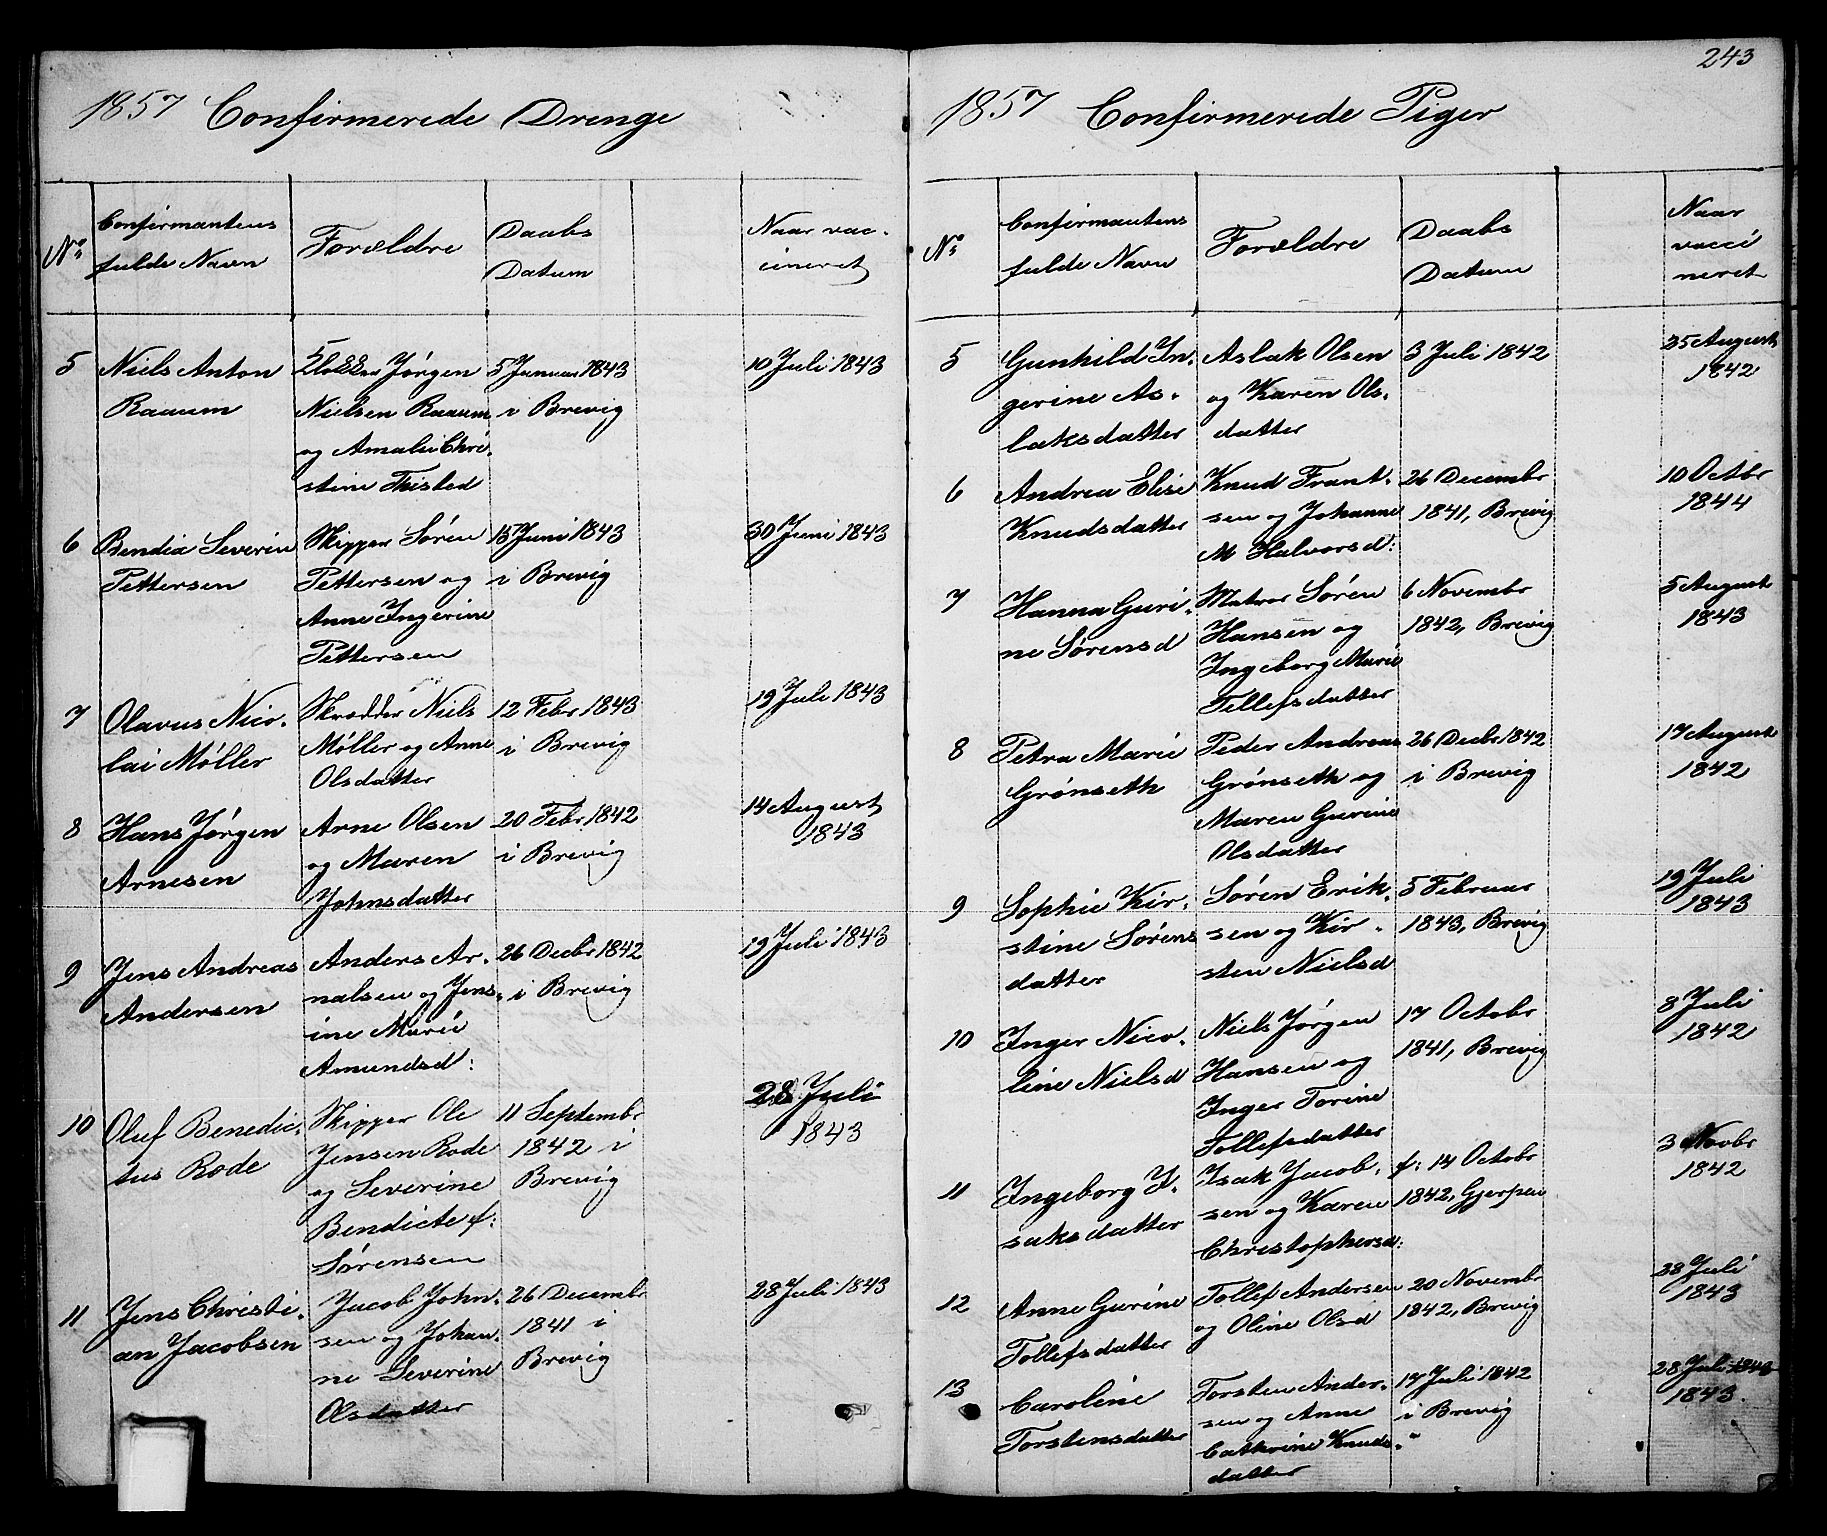 243
1857 Confirmerede Drenge
No
Confirmantens
fulde Navn
Forældre
Daabs
Datum
Naar vac-
cineret
5
Niels Anton
Raaum
Klokker Jørgen
Nielsen Raaum
og Amalie Chri-
stine Thisted
5 Januar 1843
i Brevig
10 Juli 1843
6
Bendix Severin
Pettersen
Skipper Sören
Pettersen og
Anne Ingerine
Pettersen
15 Juni 1843
i Brevig
30 Juni 1843
7
Olavus Nico-
lai Møller
Skrædder Niels
Møller og Anne
Olsdatter
12 Febr 1843
i Brevig
19 Juli 1843
8
Hans Jørgen
Arnesen
Arne Olsen
og Maren
Johnsdatter
20 Febr 1842
i Brevig
14 August
1843
9
Jens Andreas
Andersen
Anders Ar-
nalsen og Jens-
ine Marie
Amundsd:
26 Decbr 1842
i Brevig
19 Juli 1843
10
Oluf Benedic-
tus Rode
Skipper Ole
Jensen Rode
og Severine
Bendicte f:
Sørensen
11 Septembr
1842 i
Brevig
28 Juli
1843
11
Jens Christi-
an Jacobsen
Jacob John-
sen og Johan-
ne Severine
Olsdatter
26 Decembr
1841 i
Brevig
28 Juli 1843
1857 Confirmerede Piger
No
Confirmantens
fulde Navn
Forældre
Daabs
Datum
Naar
vacci
neret
5
Gunhild In-
gerine As-
laksdatter
Aslak Olsen
og Karen Ols-
datter
3 Juli 1842
25 August
1842
6
Andrea Elise
Knudsdatter
Knud Frant-
sen og Johanne
M Halvorsd:
26 Decembr
1841, Brevig
10 Octbr
1844
7
Hanna Guri-
ne Sørensd
Matros Søren
Hansen og
Ingeborg Marie
Tellefsdatter
6 Novembr
1842, Brevig
5 August
1843
8
Petra Marie
Grönseth
Peder Andreas
Grönseth og
Maren Gurine
Olsdatter
26 Decbr 1842
i Brevig
17 August
1842
9
Sophie Kir-
stine Sørens
datter
Søren Erik-
sen og Kir-
sten Nielsd
5 Februar
1843, Brevig
19 Juli
1843
10
Inger Nico-
line Nielsd
Niels Jørgen
Hansen og
Inger Torine
Tollefsdatter
17 Octobr
1841, Brevig
8 Juli
1842
11
Ingeborg I-
saksdatter
Isak Jacob-
sen og Karen
Christophersd:
f: 14 Octobr
1842, Gjerpen
3 Novbr
1842
12
Anne Gurine
Tollefsdatter
Tollef Andersen
og Oline Olsd
20 Novembr
1842, Brevig
28 Juli
1843
13
Caroline
Torstensdatter
Torsten Ander-
sen og Anne
Cathrine Knuds-
datter
17 Juli 1842
i Brevig
28 Juli 1843
1843.